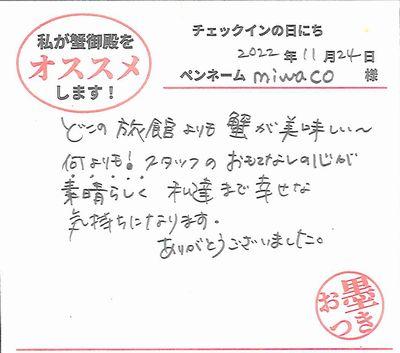 私が蟹御殿を
オススメ
します！
チェックインの日にち
2022年11月24日
ペンネーム miwaco 様
どこの旅館よりも蟹が美味しい〜
何よりも！スタッフのおもてなしの心が
素晴らしく 私達まで幸せな
気持ちになります。
ありがとうございました。
お墨つき